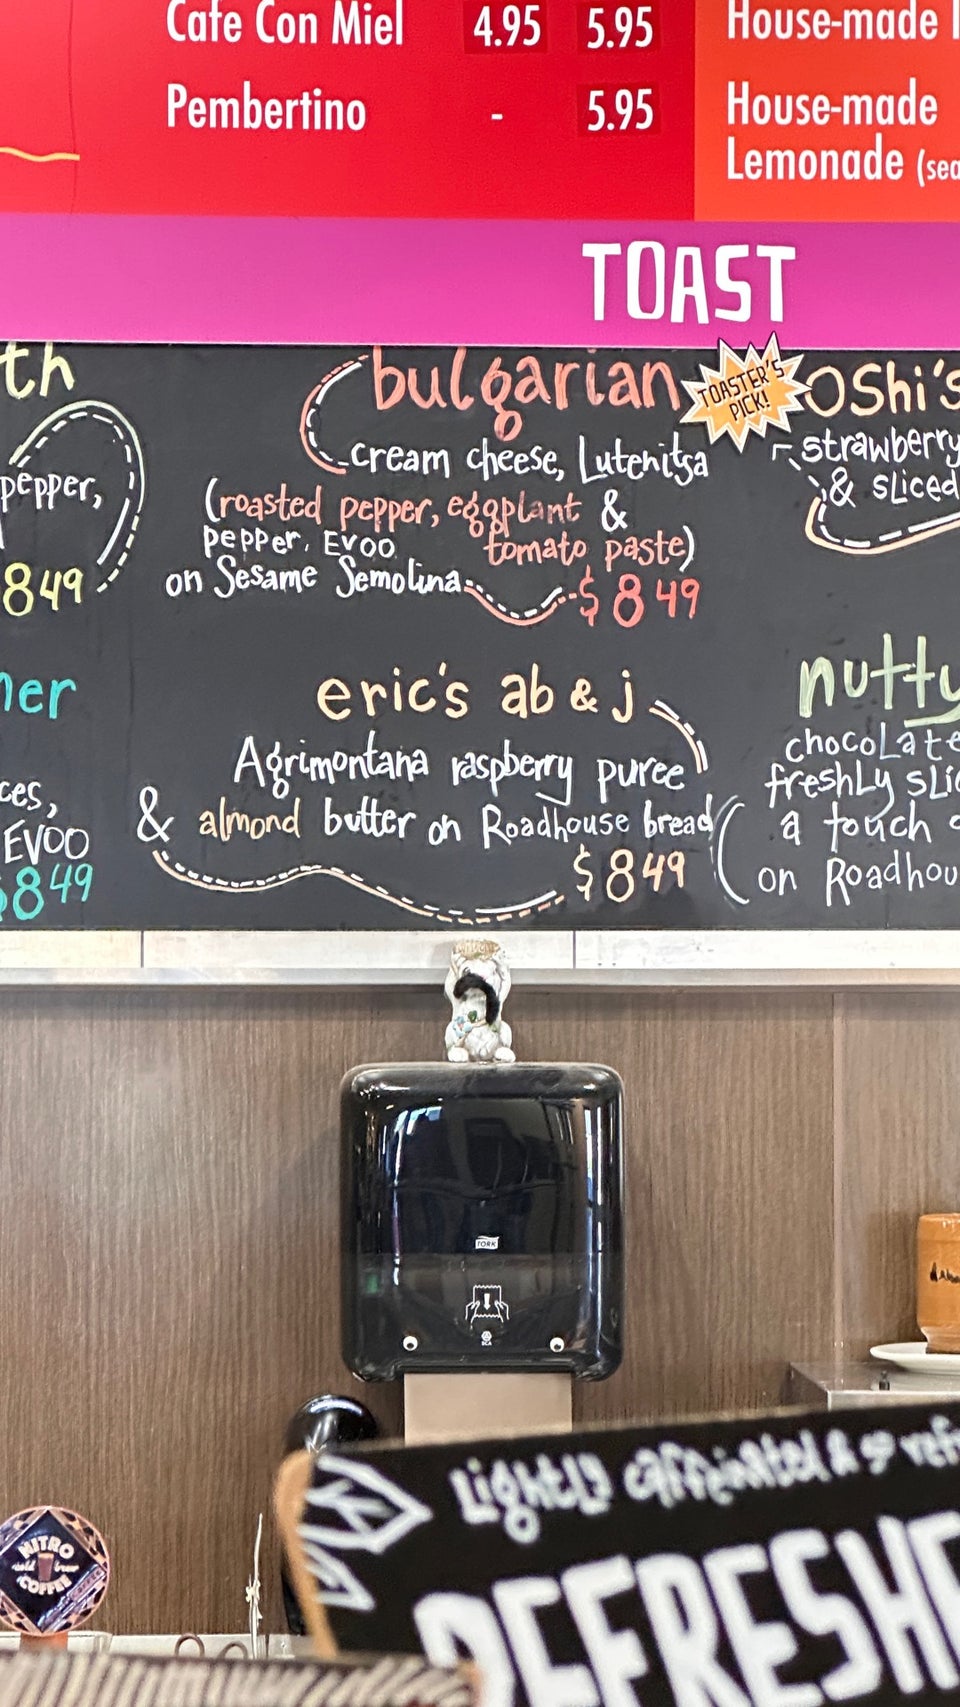 Cafe Con Miel 4.95 5.95
Pembertino - 5.95
House-made
House-made
Lemonade
TOAST
th
pepper,
849
bulgarian
cream cheese, Lutenitsa
(roasted pepper, eggplant &
tomato paste)
pepper, EVOO
on Sesame Semolina
$849
TOASTER'S
PICK!
OShi's
strawberry
& sliced
ner
ces,
EVOO
$849
eric's ab & j
Agrimontana raspberry puree
& almond butter on Roadhouse bread
$849
nutty
chocolate
freshly
a touch
on
TORK
NITRO
cold brew
COFFEE
Lightly caffeinated &